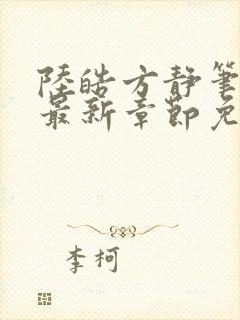 陸皓方静筆
最新章節免
李柯